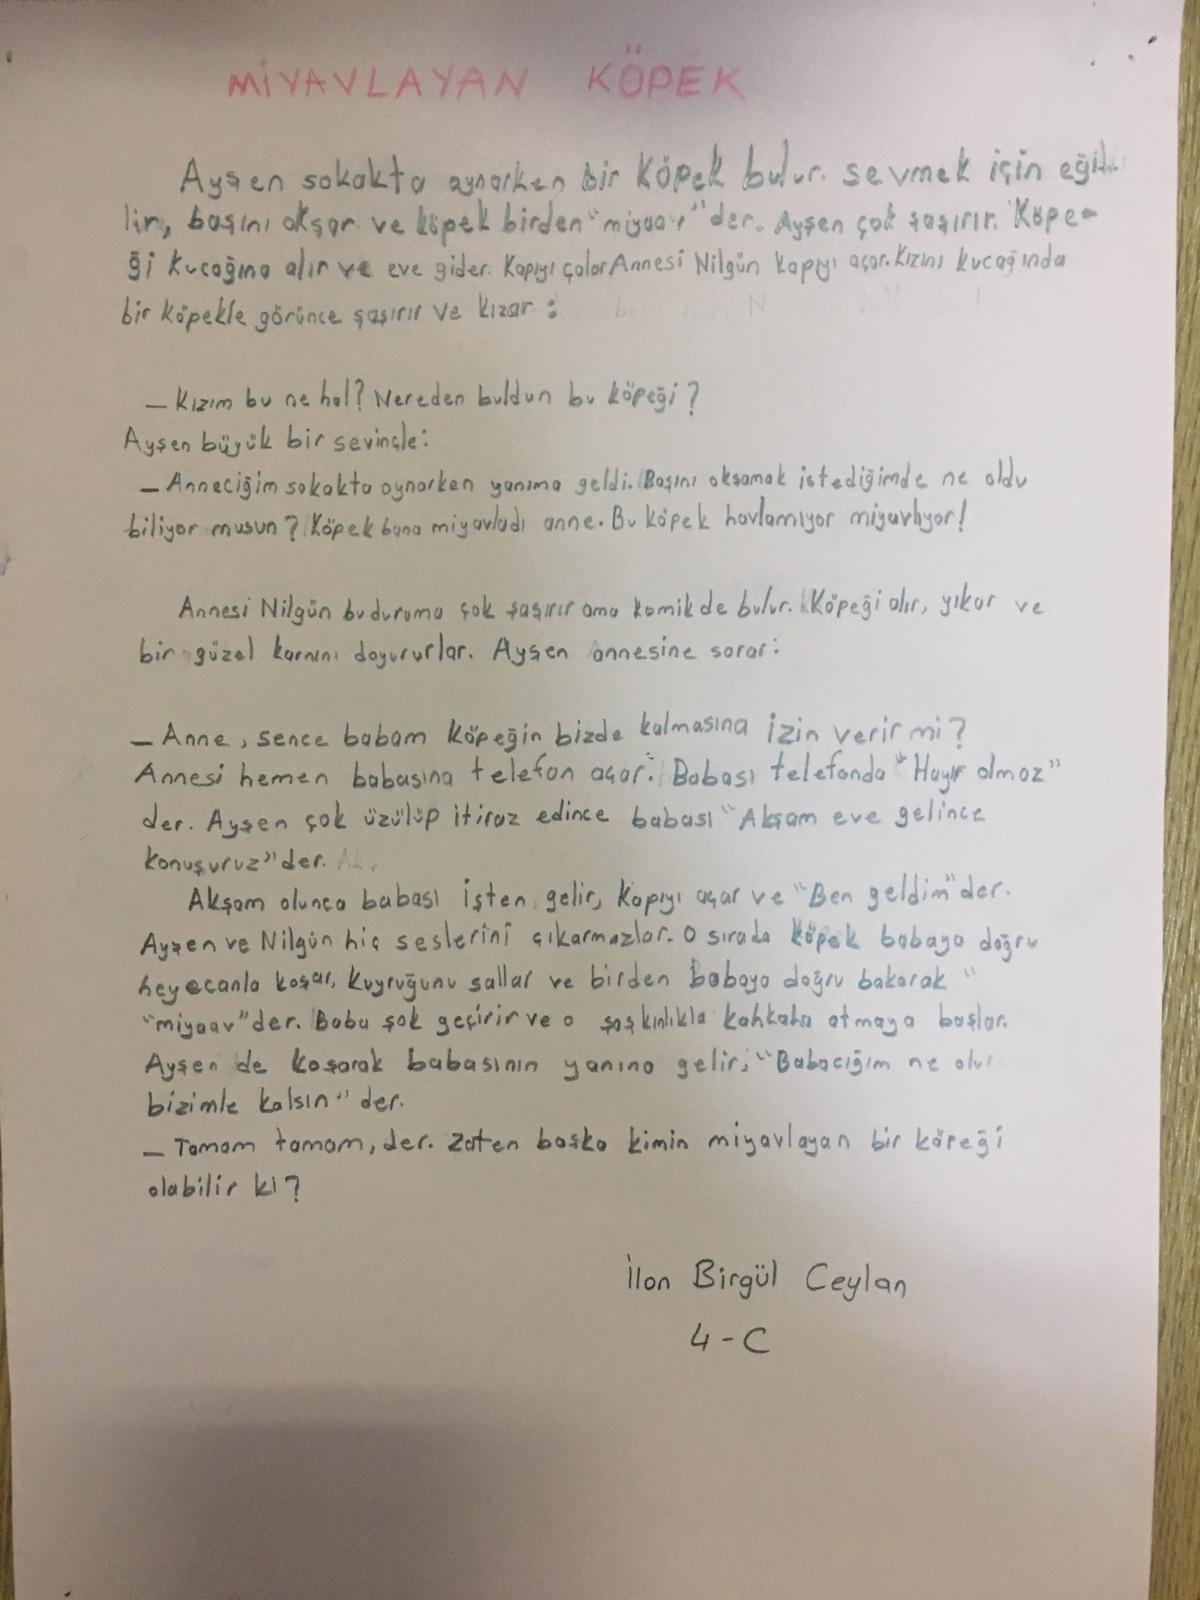 MİYAVLAYAN KÖPEK
Ayşen sokakta oynarken bir köpek bulur. sevmek için eği
lir, başını okşar ve köpek birden "miyaav" der. Ayşen çok şaşırır. Köpe-
ği kucağına alır ve eve gider. Kapıyı çalar Annesi Nilgün kapıyı açar. Kızını kucağında
bir köpekle görünce şaşırır ve kızar :
– Kızım bu ne hal? Nereden buldun bu köpeği ?
Ayşen büyük bir sevinçle:
– Anneciğim sokakta oynarken yanıma geldi. Başını okşamak istediğimde ne oldu
biliyor musun ? Köpek bana miyavladı anne. Bu köpek havlamıyor miyavlıyor!
Annesi Nilgün bu duruma çok şaşırır ama komik de bulur. Köpeği alır, yıkar ve
bir güzel karnını doyururlar. Ayşen annesine sorar:
– Anne, sence babam köpeğin bizde kalmasına izin verir mi ?
Annesi hemen babasına telefon açar. Babası telefonda "Hayır olmaz"
der. Ayşen çok üzülüp itiraz edince babası "Akşam eve gelince
konuşuruz" der.
Akşam olunca babası işten gelir, kapıyı açar ve "Ben geldim" der.
Ayşen ve Nilgün hiç seslerini çıkarmazlar. O sırada köpek babaya doğru
heyecanla koşar, kuyruğunu sallar ve birden babaya doğru bakarak "
"miyaav" der. Baba şok geçirir ve o şaşkınlıkla kahkaha atmaya başlar.
Ayşen de koşarak babasının yanına gelir, "Babacığım ne olur
bizimle kalsın" der.
– Tamam tamam, der. Zaten başka kimin miyavlayan bir köpeği
olabilir ki ?
İlon Birgül Ceylan
4-C